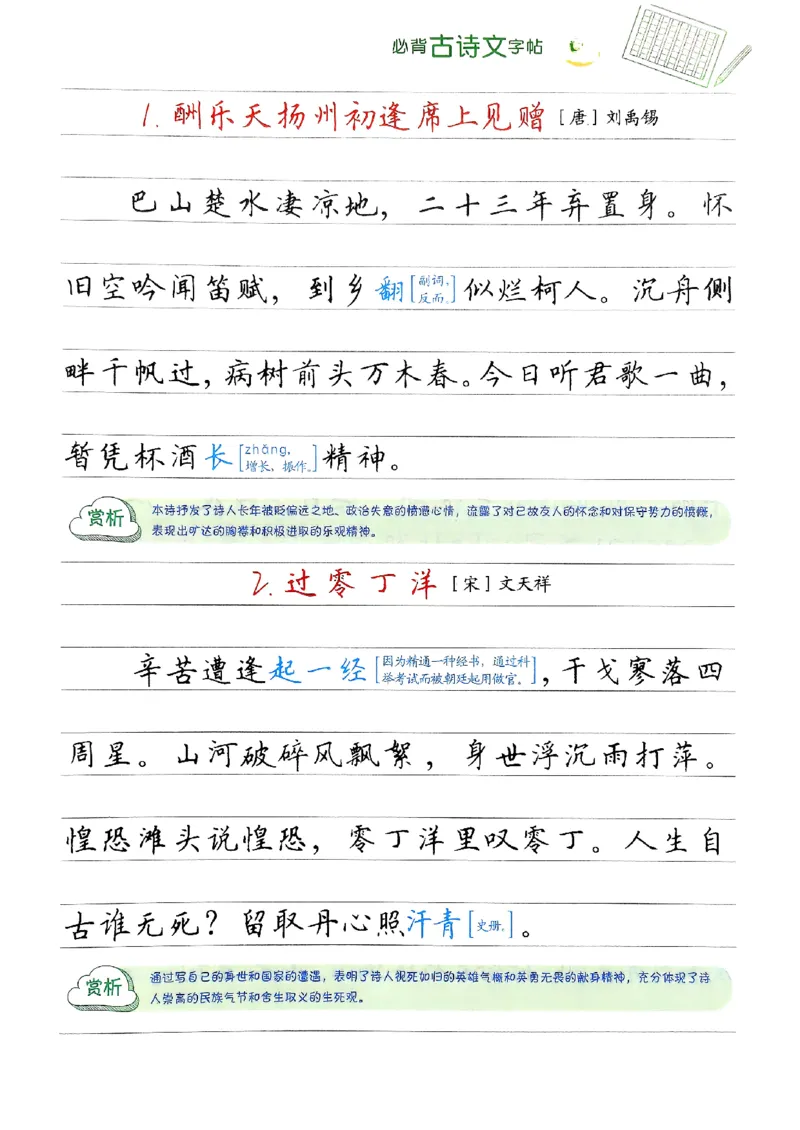 必背古诗文字帖
1.酬乐天扬州初逢席上见赠 [唐] 刘禹锡
巴山楚水凄凉地，二十三年弃置身。怀
旧空吟闻笛赋，到乡翻[副词，反而。]似烂柯人。沉舟侧
畔千帆过，病树前头万木春。今日听君歌一曲，
暂凭杯酒长[zhǎng，增长，振作。]精神。
赏析
本诗抒发了诗人长年被贬偏远之地、政治失意的愤懑心情，流露了对已故友人的怀念和对保守势力的愤慨，
表现出旷达的胸襟和积极进取的乐观精神。
2.过零丁洋 [宋] 文天祥
辛苦遭逢起一经[因为精通一种经书，通过科举考试而被朝廷起用做官。]，干戈寥落四
周星。山河破碎风飘絮，身世浮沉雨打萍。
惶恐滩头说惶恐，零丁洋里叹零丁。人生自
古谁无死？留取丹心照汗青[史册。]。
赏析
通过写自己的身世和国家的遭遇，表明了诗人视死如归的英雄气概和英勇无畏的献身精神，充分体现了诗
人崇高的民族气节和舍生取义的生死观。